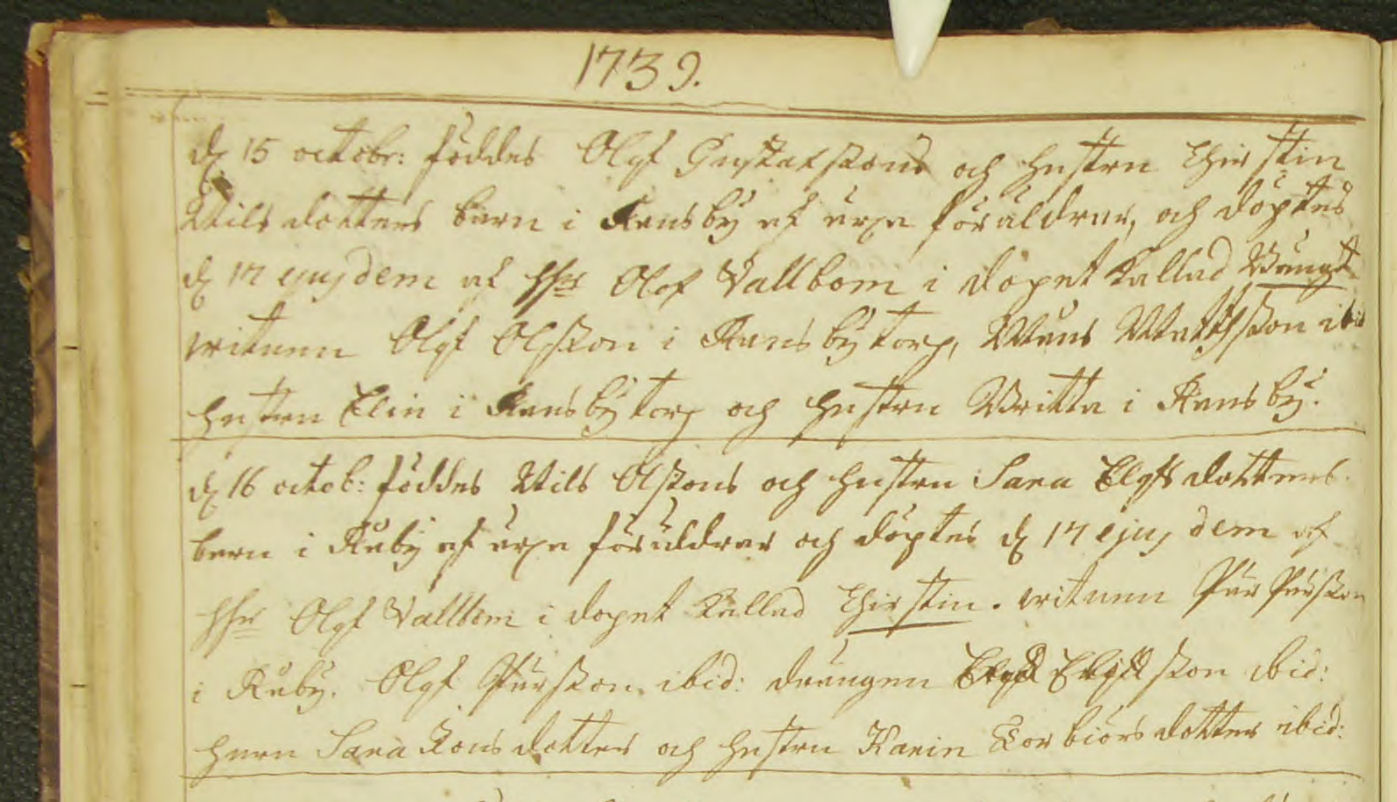 1739.
d 15 octobr: föddes Olof Gustafsons och hustru Chirstin
Nils dotters barn i Ransby af ärya föräldrar, och döptes
d 17 ejusdem af Hr Olof Vallbom i dopet kallad Bengt
witnen Olof Olsson i Ransbytorp, Måns Matsson ibid
hustru Elin i Ransbytorp och hustru Britta i Ransby.
d 16 octob: föddes Nils Olssons och hustru Sara Elofs dotters
barn i Råby af ärya föräldrar och döptes d 17 ejusdem af
Hr Olof Vallbom i dopet kallad Chirstin. witnen Pär Pärsson
i Råby. Olof Pärsson ibid: drängen son ibid:
Sara Jons dotter och hustru Karin Torbiörs dotter ibid: